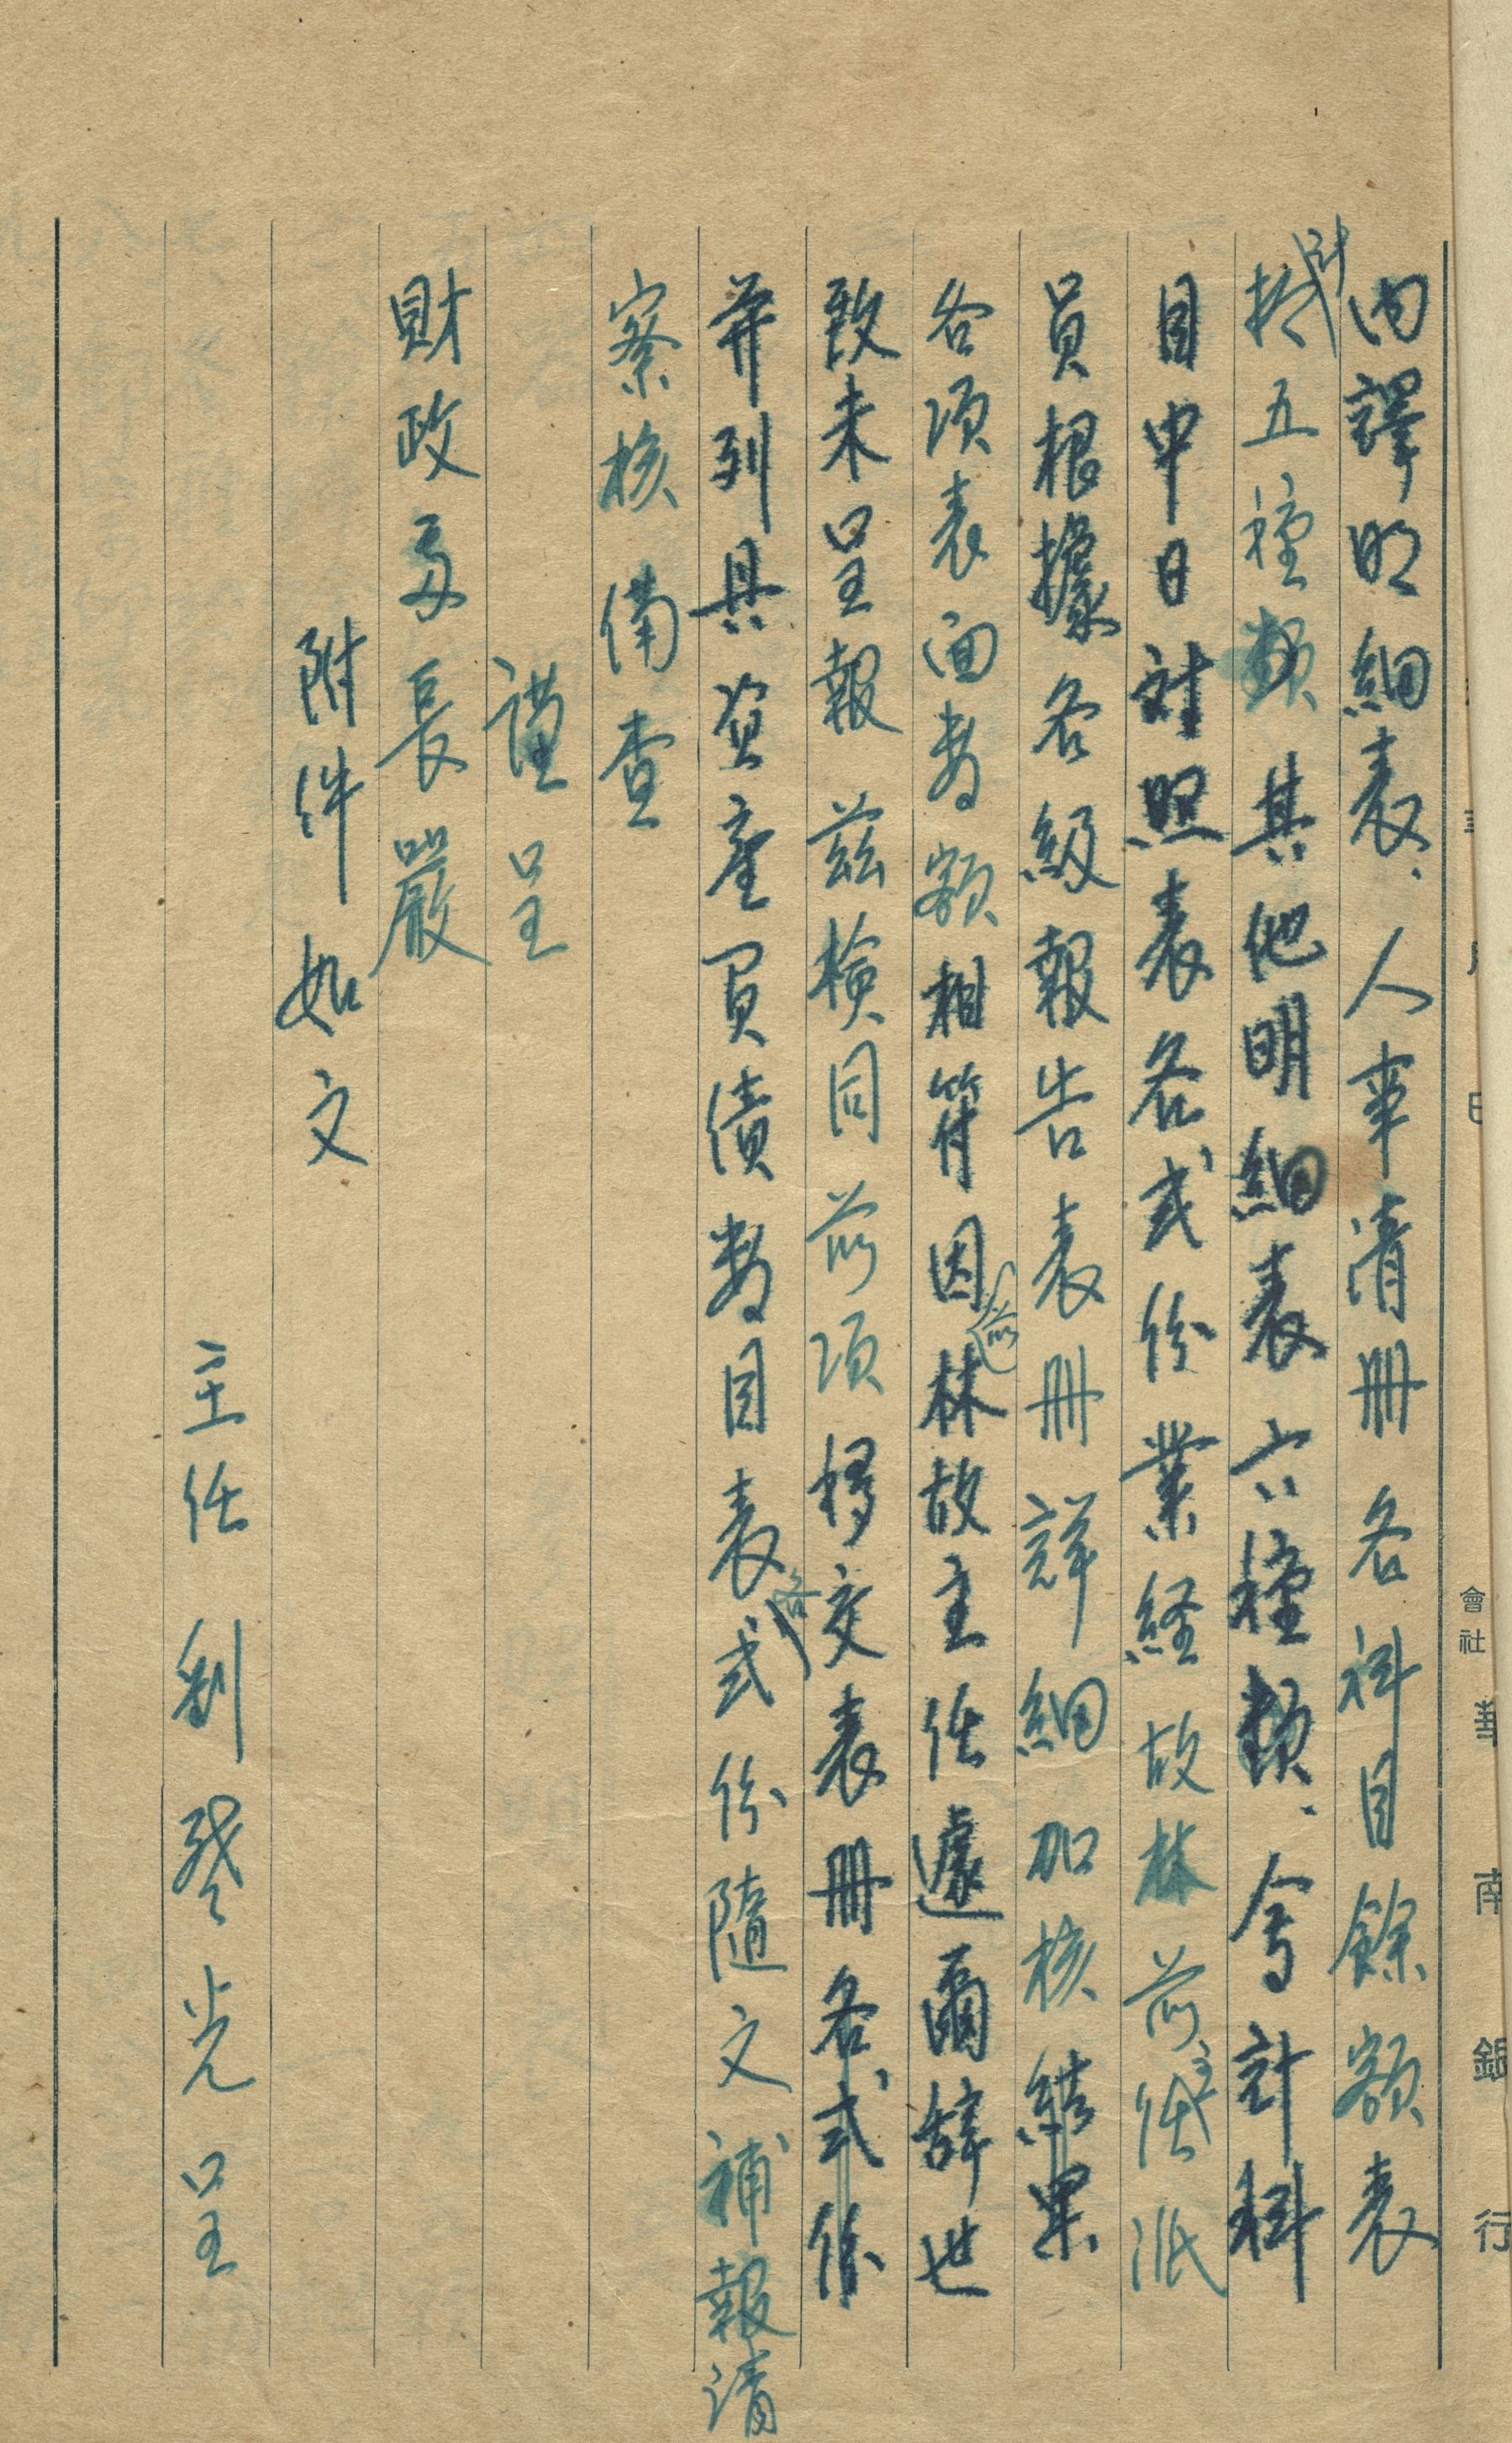 內譯明細表、人事清冊各科目餘額表
計拾五種類其他明細表六種類、會計科
目中日対照表各弍份業経故林前主任派
員根據各級報告表冊詳細加核結果
各項表面數額相符因前林故主任遽爾辞世
致未呈報茲檢同前項移交表冊各弍份
並列具資產負債數目表各弍份隨文補報請
察核備查
謹呈
財政處長嚴
附件如文
主任劉 光呈
會社 華南銀行